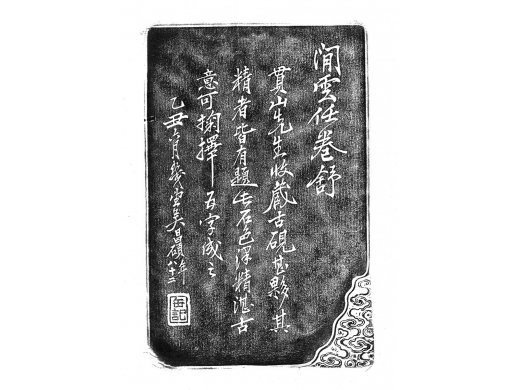 閒雲任卷舒
貫山先生收藏古硯甚夥其
精者皆有題此石色澤精湛古
意可掬擇五字成之
乙丑六月幾望吳昌碩年八十二
缶記